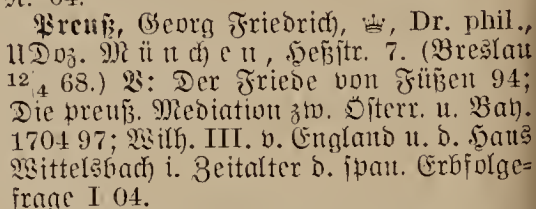 A. 04.
Preuß, Georg Friedrich, ♛, Dr. phil.,
UDoz. München, Heßstr. 7. (Breslau
12/4 68.) B: Der Friede von Füßen 94;
Die preuß. Mediation zw. Österr. u. Bay.
1704 97; Wilh. III. v. England u. d. Haus
Wittelsbach i. Zeitalter d. span. Erbfolge-
frage I 04.